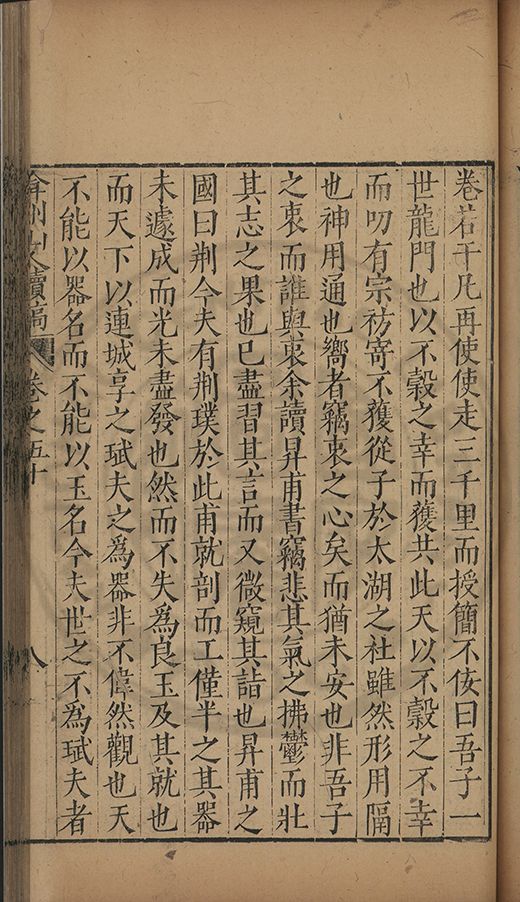 卷若干凡再使使走三千里而授簡不佞曰吾子一
世龍門也以不穀之幸而獲共此天以不穀之不幸
而叨有宗祊寄不獲從子於太湖之社雖然形用隔
也神用通也嚮者竊衷之心矣而猶未安也非吾子
之衷而誰與衷余讀昇甫書竊悲其氣之拂鬱而壯
其志之果也已盡習其言而又微窺其詣也昇甫之
國曰荆今夫有荆璞於此甫就剖而工僅半之其器
未遽成而光未盡發也然而不失為良玉及其就也
而天下以連城享之珷夫之為器非不偉然觀也天
不能以器名而不能以玉名今夫世之不為珷夫者
弇州山人續稿 卷之五十 八